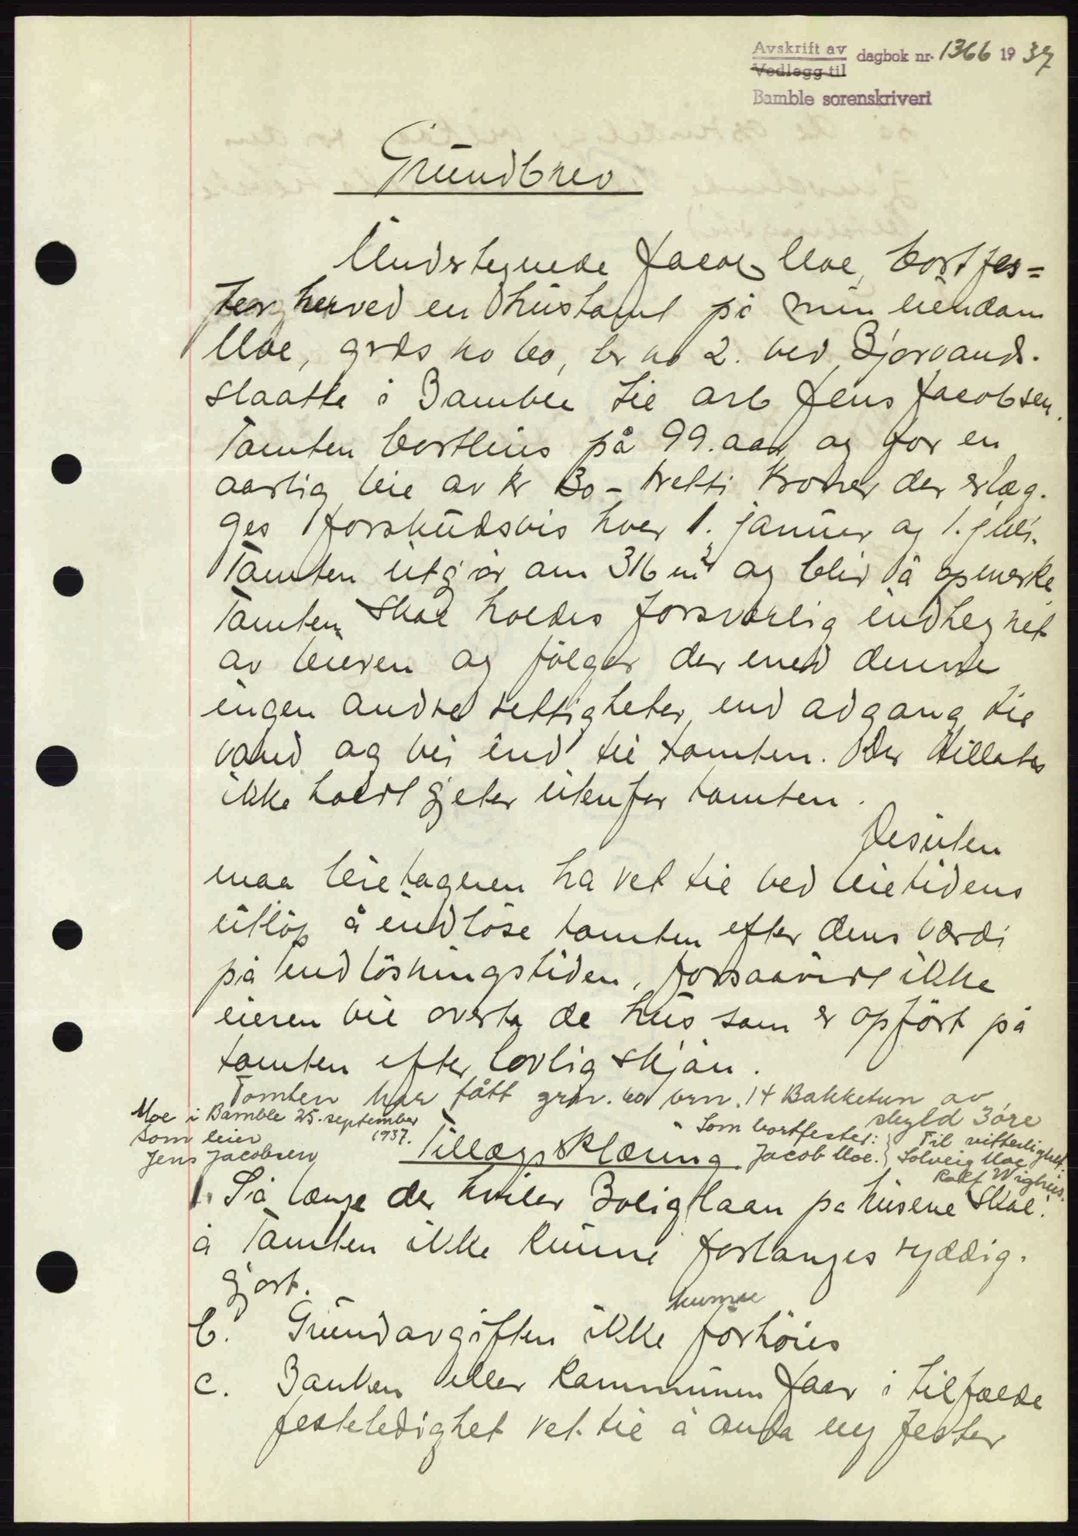 Avskrift av
Vedlegg til
dagbok nr. 1366 1937
Bamble sorenskriveri
Grundbrev
Undertegnede Jacob Moe, bortfes=
ter herved en hustomt på min eiendom
Moe, grds no 60, br no 2. ved Bjorvand-
slaatte i Bamble til arb Jens Jacobsen.
Tomten bortleies på 99. aar og for en
aarlig leie av kr 30 - tretti kroner der erlæg-
ges forskudsvis hver 1. januar og 1. juli.
Tomten utgjør om 316 m² og blir å opmerke
Tomten skal holdes forsvarlig indhegnet
av leieren og følger der med denne
ingen andre rettigheter end adgang til
vand og vei ind til tomten. Der tillates
ikke holdt gjeter utenfor tomten.
Desuten
maa leietageren ha ret til ved leietidens
utløp å indløse tomten efter dens værdi
på indløsningstiden, forsaavidt ikke
eieren vil overta de hus som er opført på
tomten efter lovlig skjøn.
Tomten har fått grnr. 60 brnr. 14 Bakketun av
skyld 3 øre
Moe i Bamble 25. september
1937.
Som leier
Jens Jacobsen
Som bortfester:
Jacob Moe.
Til vitterlighet:
Solveig Moe
Ralf Wighus.
Tillægsklæring
1. Så længe der hviler Boliglaan på husene skal:
a Tomten ikke kunne forlanges ryddig-
gjort.
b. Grundavgiften ikke kunne forhøies
c. Banken eller kommunen faar i tilfælde
festeledighet ret til å anta ny fester